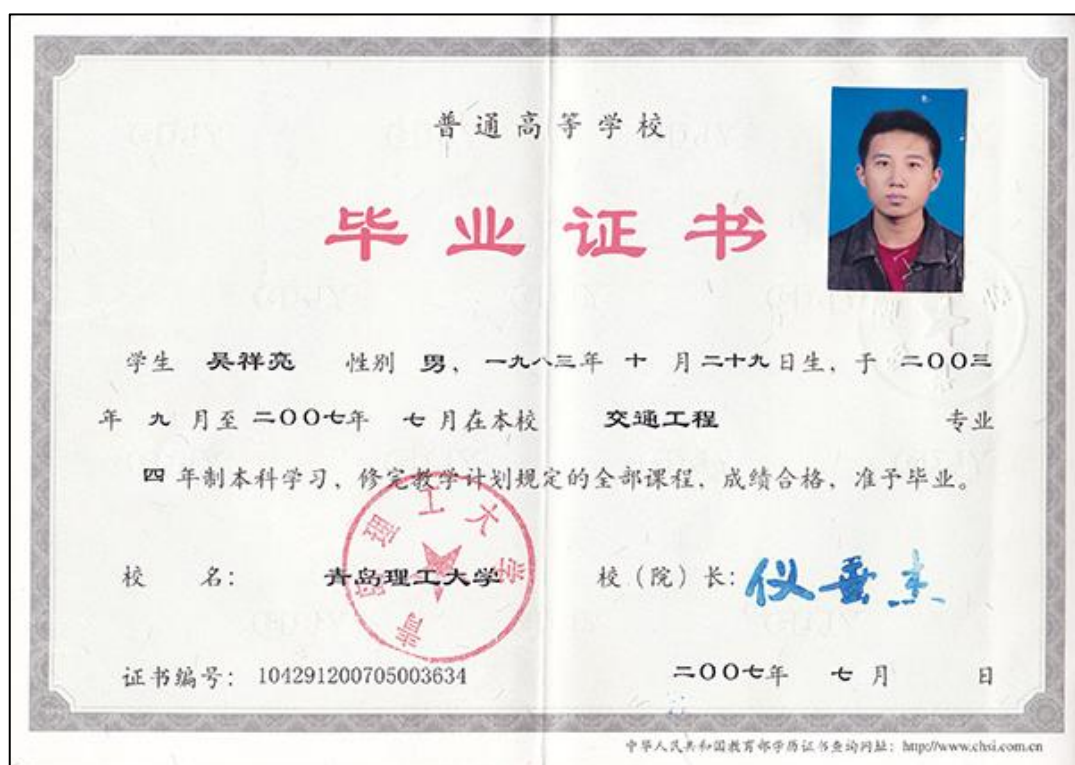 普通高等学校
毕业证书
学生 吴祥亮 性别 男，一九八三年 十 月二十九日生，于 二〇〇三
年 九 月至 二〇〇七年 七 月在本校 交通工程 专业
四 年制本科学习，修完教学计划规定的全部课程，成绩合格，准予毕业。
校 名： 青岛理工大学 校（院）长：仪垂杰
青岛理工大学
证书编号：104291200705003634 二〇〇七年 七 月 日
中华人民共和国教育部学历证书查询网址：http://www.chsi.com.cn